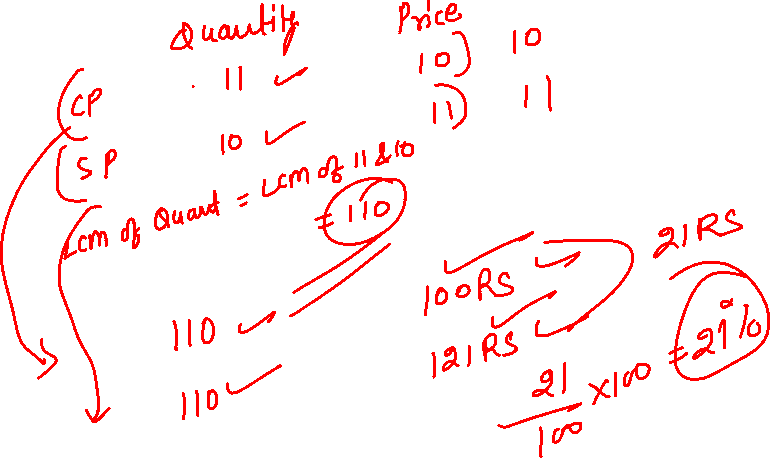 Quantity Price
CP 11 10) 10
SP 10 11) 11
Lcm of Quant = Lcm of 11 & 10
= 110
110 100RS 21RS
110 121RS
21/100 ×100 = 21%